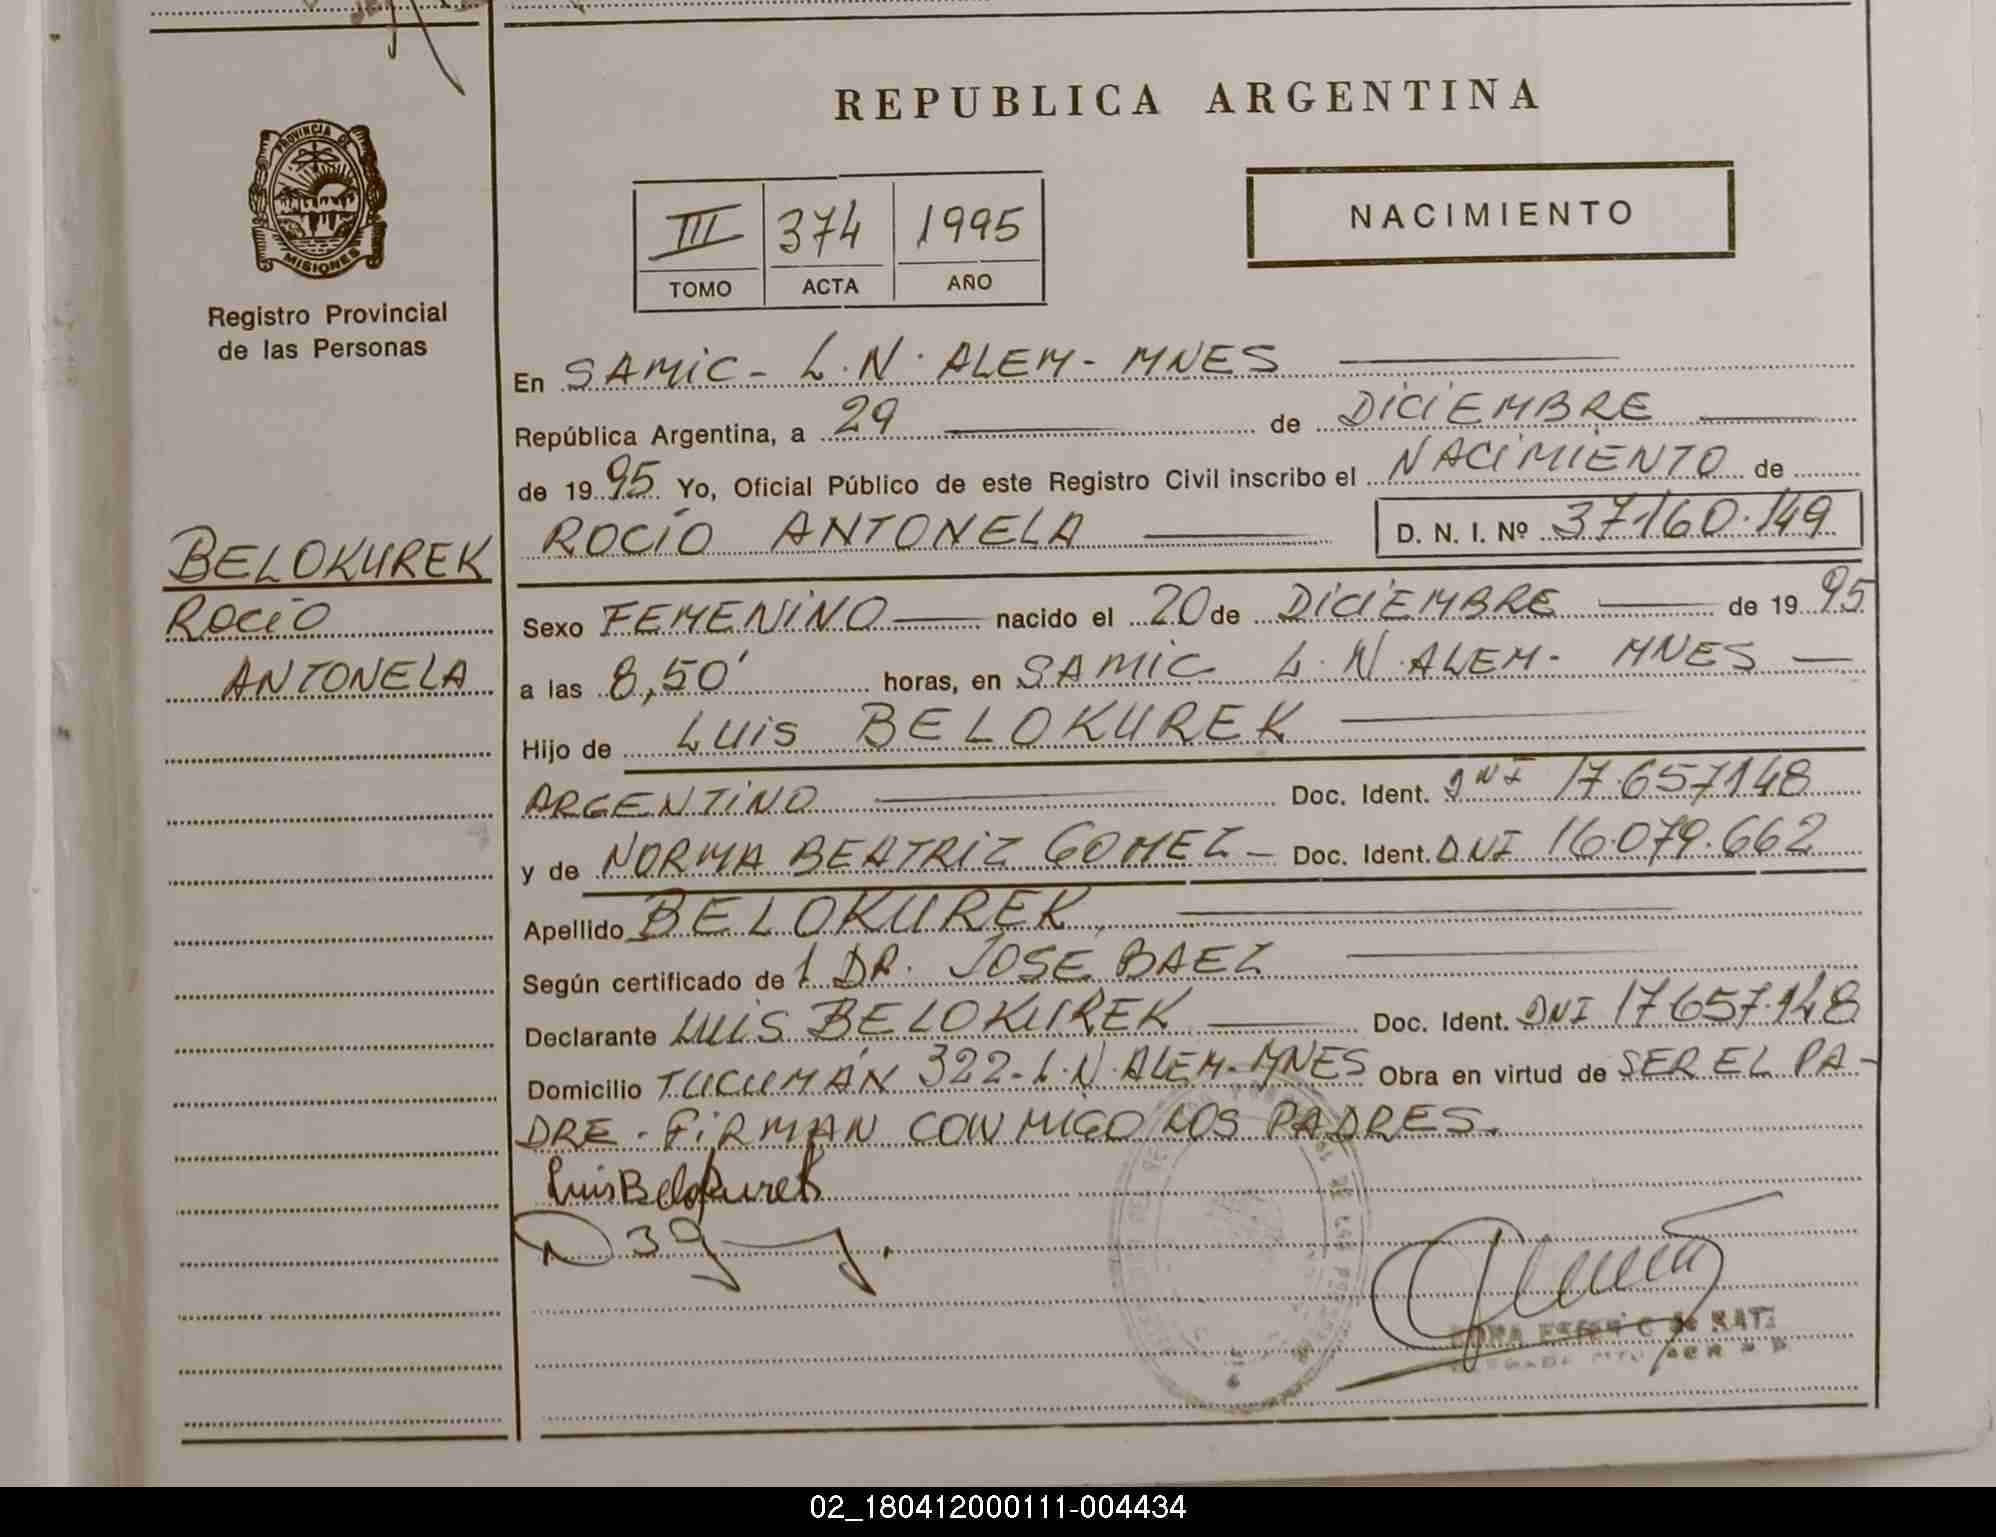 REPUBLICA ARGENTINA
PROVINCIA DE
MISIONES
Registro Provincial
de las Personas
III 374 1995
TOMO ACTA AÑO
NACIMIENTO
BELOKUREK
ROCÍO
ANTONELA
En SAMIC - L.N. ALEM - MNES
República Argentina, a 29 de DICIEMBRE
de 1995 Yo, Oficial Público de este Registro Civil inscribo el NACIMIENTO de
ROCÍO ANTONELA D. N. I. Nº 37160.149
Sexo FEMENINO nacido el 20 de DICIEMBRE de 1995
a las 8,50' horas, en SAMIC L.N. ALEM - MNES
Hijo de LUIS BELOKUREK
ARGENTINO Doc. Ident. DNI 17.657148
y de NORMA BEATRIZ GOMEZ - Doc. Ident. DNI 16.079.662
Apellido BELOKUREK
Según certificado de 1 DR. JOSÉ BAEZ
Declarante LUIS BELOKUREK Doc. Ident. DNI 17657.148
Domicilio TUCUMÁN 322 - L.N. ALEM - MNES Obra en virtud de SER EL PA-
DRE - FIRMAN CONMIGO LOS PADRES.
Luis Belokurek
02_180412000111-004434